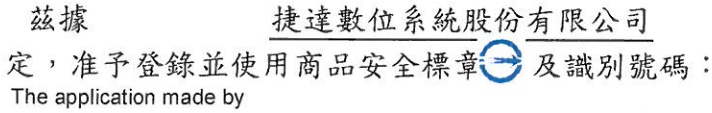 茲據 捷達數位系統股份有限公司
定，准予登錄並使用商品安全標章 及識別號碼：
The application made by